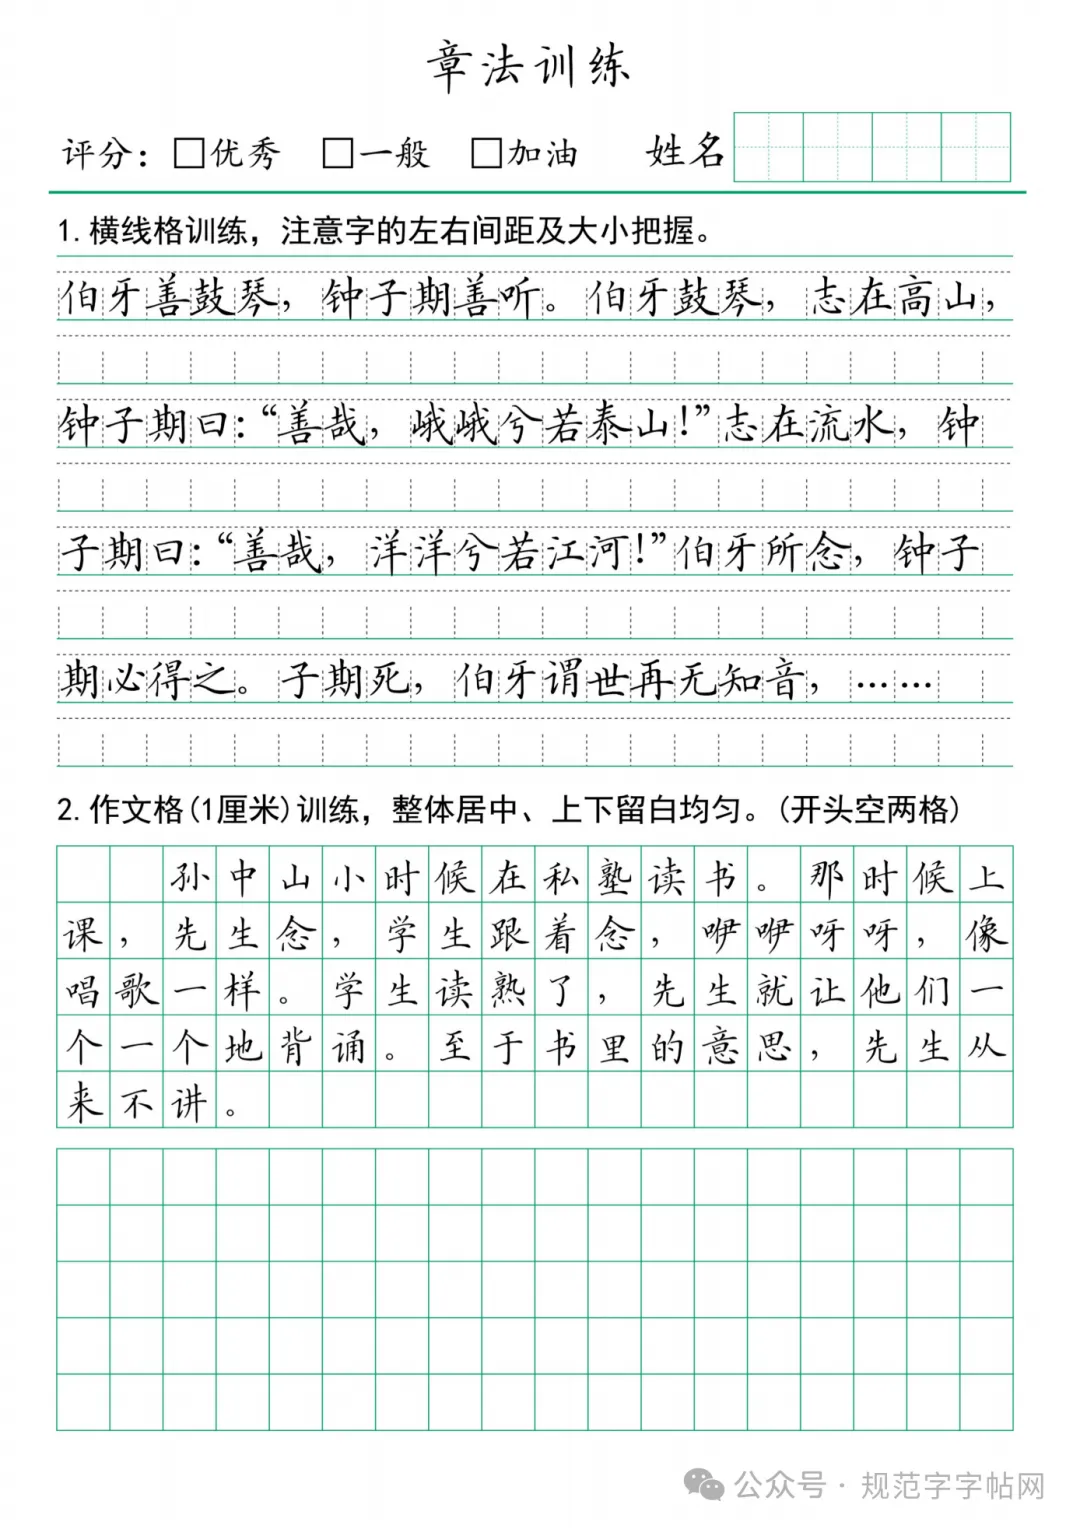 章法训练
评分：□优秀 □一般 □加油 姓名
1.横线格训练，注意字的左右间距及大小把握。
伯牙善鼓琴，钟子期善听。伯牙鼓琴，志在高山，
钟子期曰：“善哉，峨峨兮若泰山！”志在流水，钟
子期曰：“善哉，洋洋兮若江河！”伯牙所念，钟子
期必得之。子期死，伯牙谓世再无知音，……
2.作文格(1厘米)训练，整体居中、上下留白均匀。(开头空两格)
孙中山小时候在私塾读书。那时候上
课，先生念，学生跟着念，咿咿呀呀，像
唱歌一样。学生读熟了，先生就让他们一
个一个地背诵。至于书里的意思，先生从
来不讲。
公众号·规范字字帖网